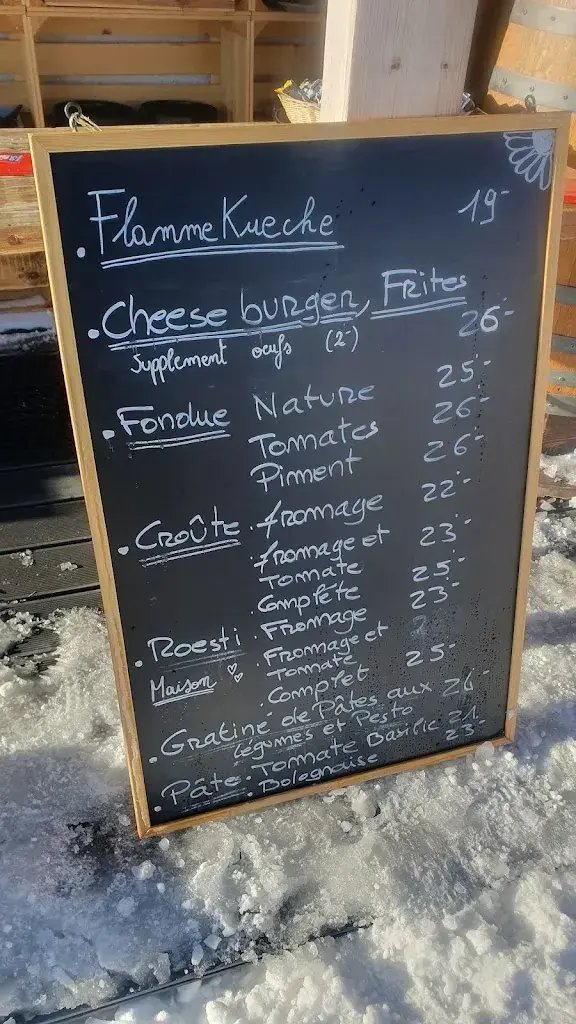 . FlammeKueche 19.-
. Cheese burger, Frites 26.-
Supplement oeufs (2.-)
. Fondue Nature 25.-
Tomates 26.-
Piment 26.-
. Croûte . fromage 22.-
. fromage et Tomate 23.-
. Complète 25.-
. Roesti . Fromage 23.-
Maison . Fromage et Tomate
. Complet 25.-
. Gratiné de Pâtes aux légumes et Pesto
. Pâte . Tomate Basilic 21.-
. Bolognaise 23.-